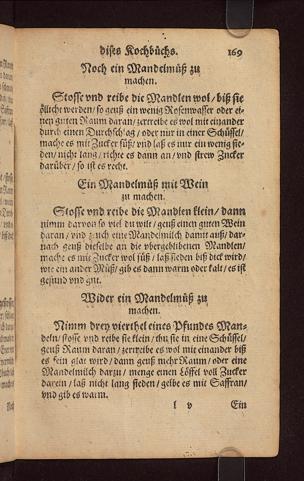 dises Kochbüchs. 169
Noch ein Mandelmüß zu
machen.
Stosse vnd reibe die Mandlen wol / biß sie
öllicht werden / so geuß ein wenig Rosenwasser oder ei-
nen guten Raum daran / zertreibe es wol mit einander
durch einen Durchschlag / oder nur in einer Schüssel /
mache es mit Zucker süß / vnd laß es nur ein wenig sie-
den / nicht lang / richte es dann an / vnd strew Zucker
darüber / so ist es recht.
Ein Mandelmüß mit Wein
zu machen.
Stosse vnd reibe die Mandlen klein / dann
nimm darvon so viel du wilt / geuß einen guten Wein
daran / vnd zeuch eine Mandelmilch damit auß / dar-
nach geuß dieselbe an die vbergeblibenen Mandlen /
mache es mit Zucker wol süß / laß sieden biß dick wird /
wie ein ander Müß / gib es dann warm oder kalt / es ist
gesund vnd gut.
Wider ein Mandelmüß zu
machen.
Nimm drey vierthel eines Pfundes Man-
deln / stosse vnd reibe sie klein / thu sie in eine Schüssel /
geuß Raum daran / zertreibe es wol mit einander biß
es fein glat wird / dann geuß mehr Raum / oder eine
Mandelmilch darzu / menge einen Löffel voll Zucker
darein / laß nicht lang sieden / gelbe es mit Saffran /
vnd gib es warm.
l v Ein